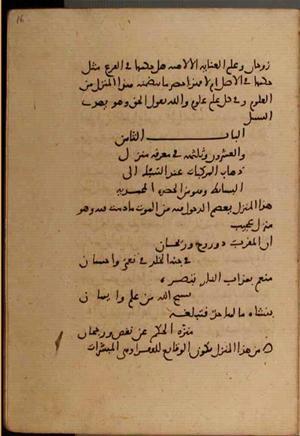 16
زوجان وعلم العناية الالاهية هل حكمها في الفرع مثل
حكمها في الاصل ام لا فهذا حصر ما يتضمنه هذا المنزل من
العلوم وفي كل علم علوم والله يقول الحق وهو يهدي
السبيل
الباب الثامن
والعشرون وثلثمائة في معرفة منزل
ذهاب المركبات عند السبك الى
البسائط وهو من الحضرة المحمدية
هذا المنزل يعصم الدخول فيه من الموت ما دمت فيه وهو
منزل عجيب
ان المقرب ذو روح وريحان
في جنة الخلد في نعمى واحسان
منعم بعذاب النار تبصره
يسبح الله من علم وايمان
بنشاة ما لها حد فتبلغه
منزه الحكم عن نقص ورجحان
من هذا المنزل تكون الوقايع للفقرا وهي المبشرات